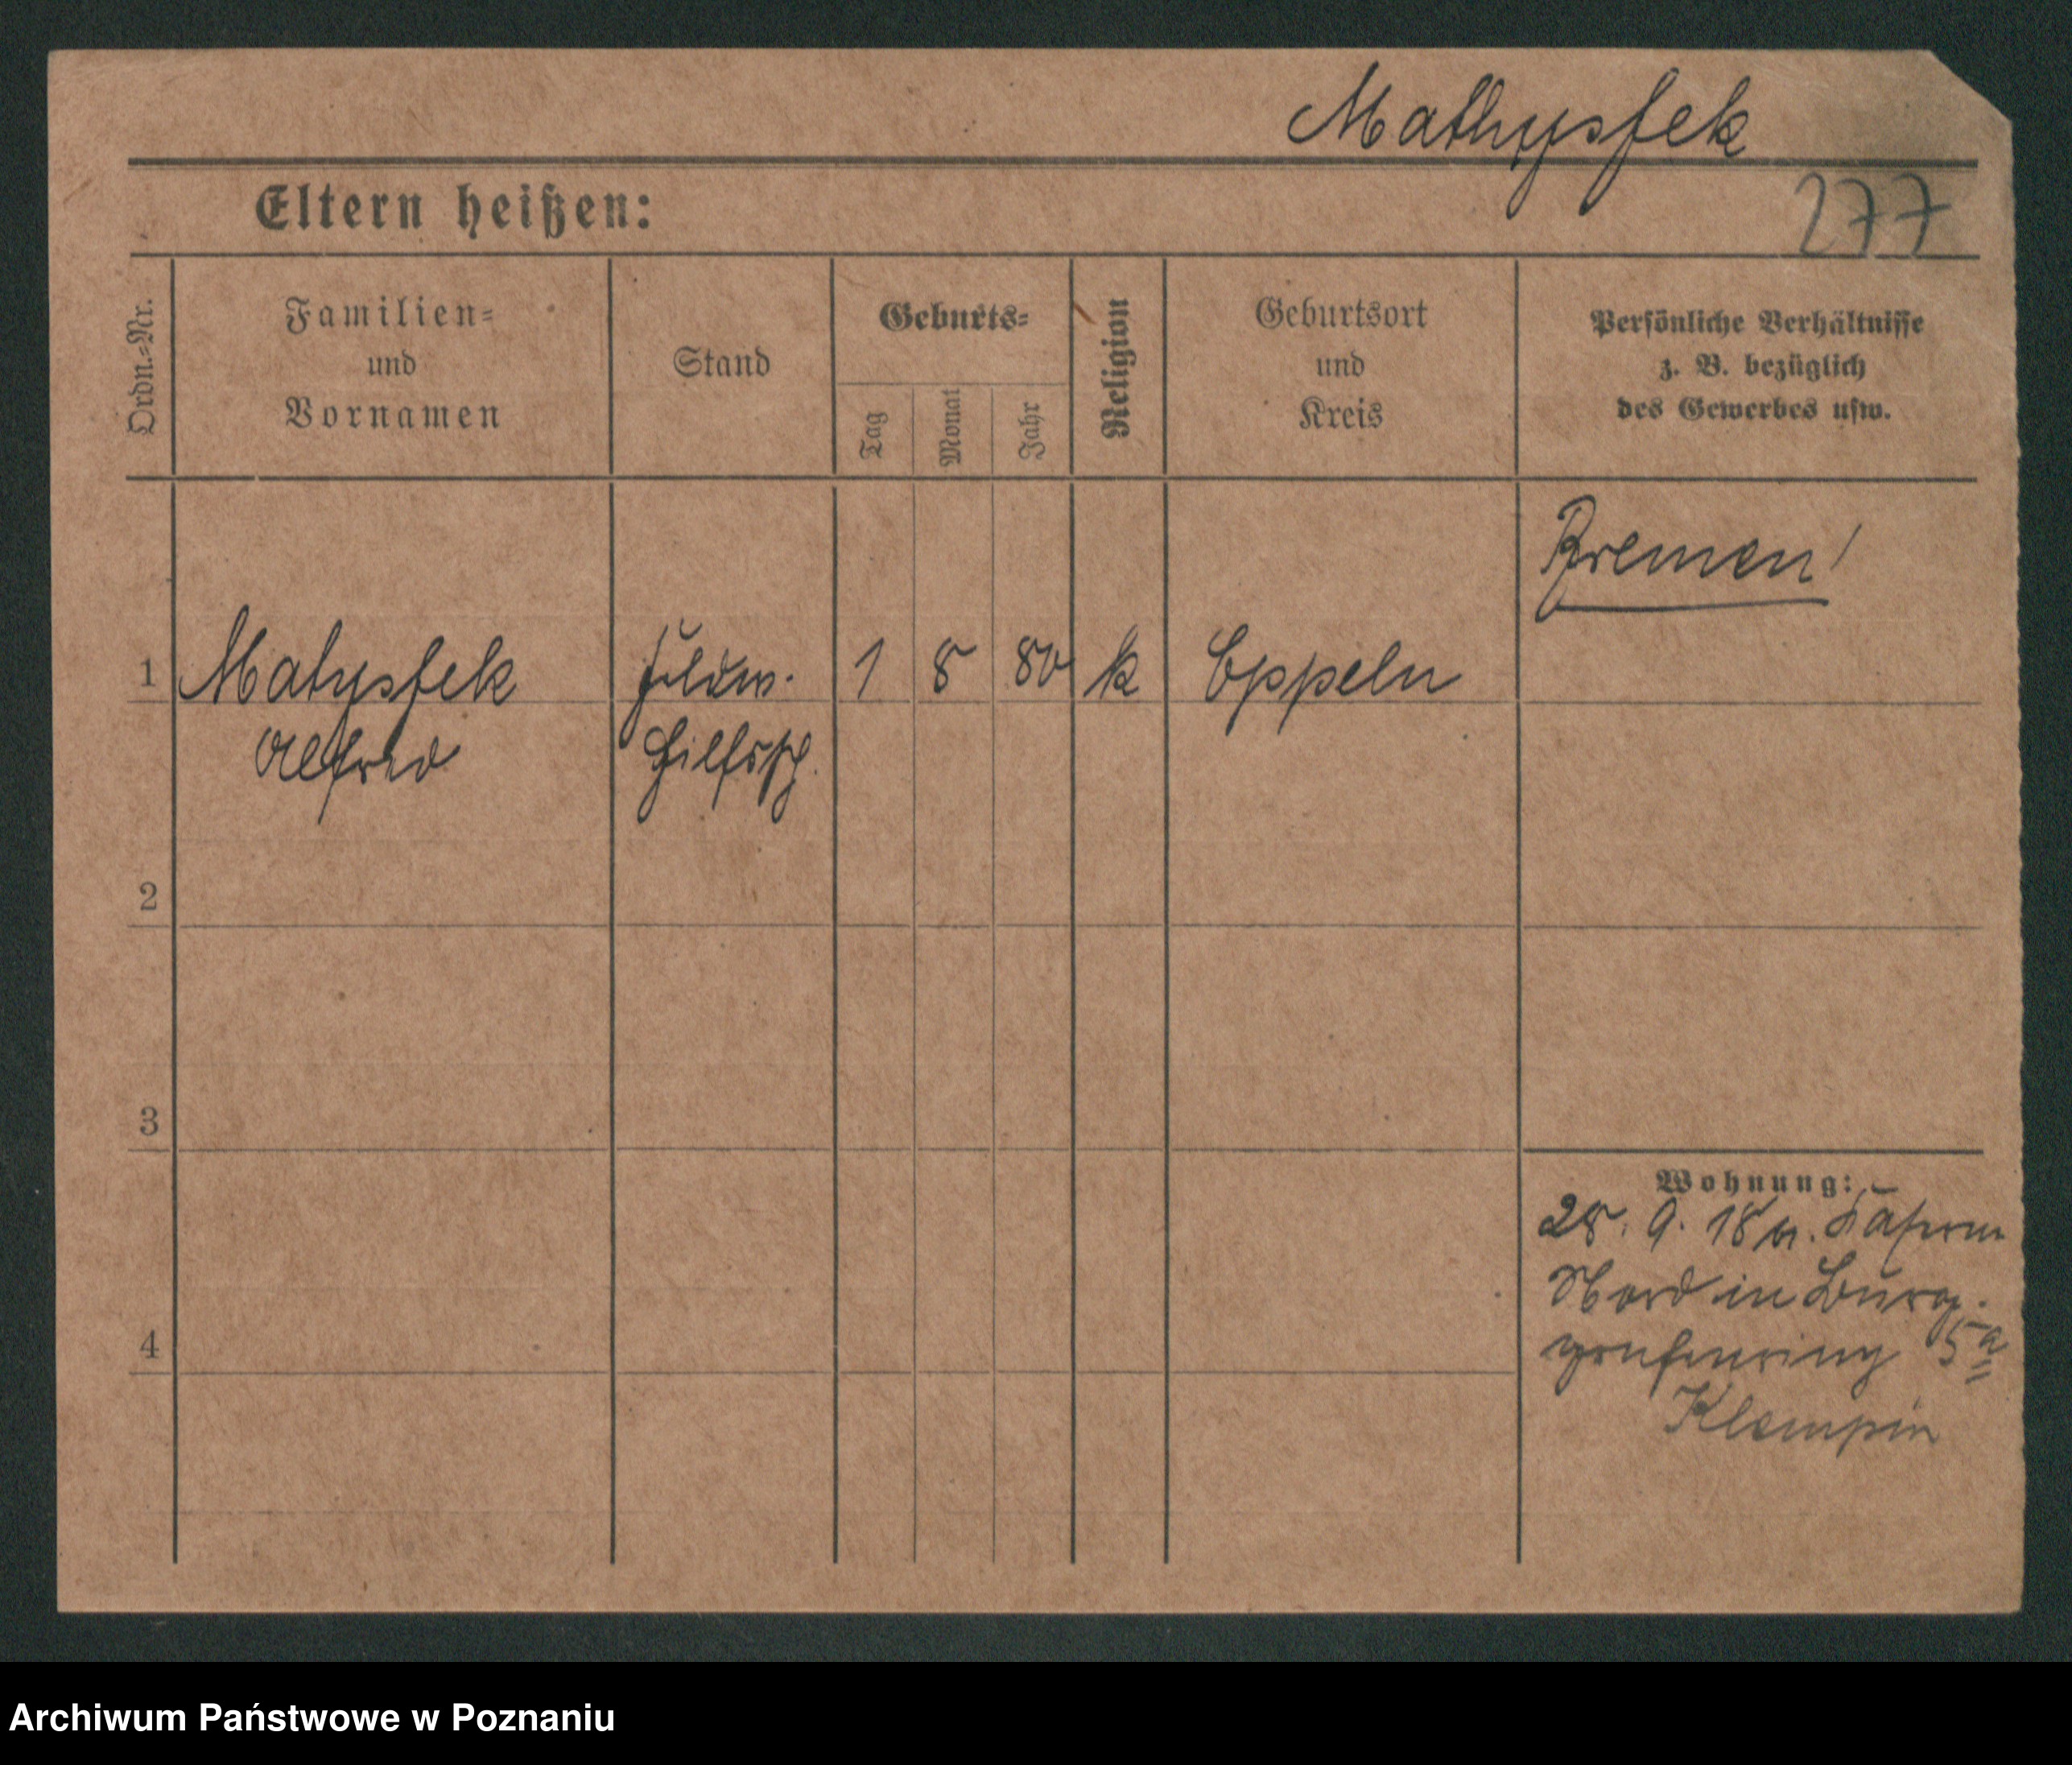 Mathysfek
277
Eltern heißen:
Ordn.-Nr.
Familien-
und
Vornamen
Stand
Geburts-
Tag
Monat
Jahr
Religion
Geburtsort
und
Kreis
Persönliche Verhältnisse
z. B. bezüglich
des Gewerbes usw.
Bremen!
1 Matysfek 1 8 80 k Oppeln
Alfred Hilfssch.
2
3
Wohnung:
28. 9. 18 n.
Nord in Burg-
grafenring 5a
4
Klempin
Archiwum Państwowe w Poznaniu